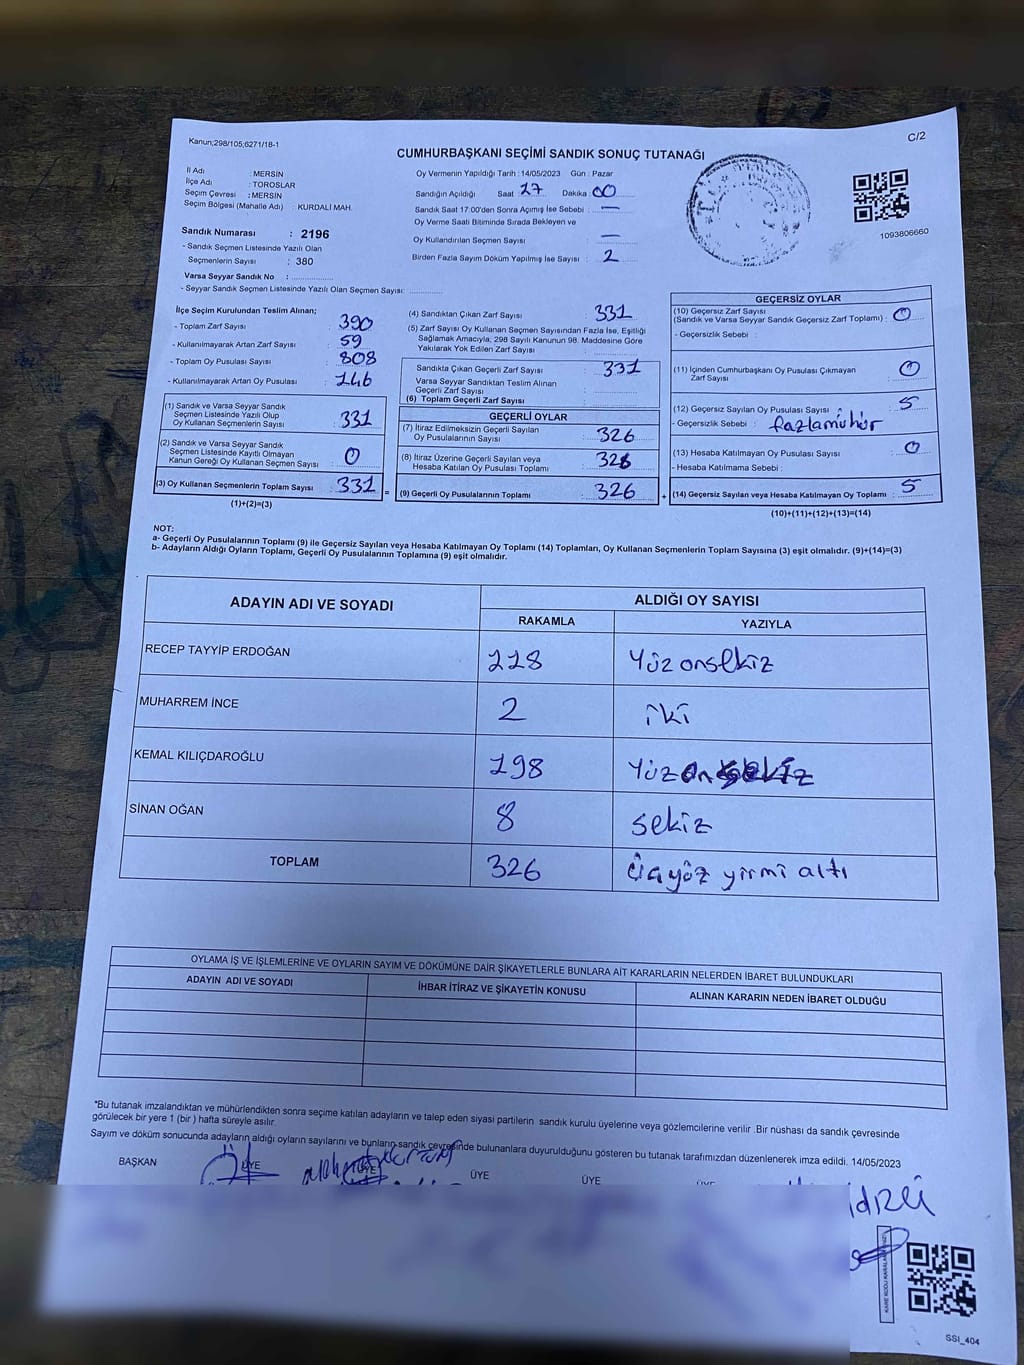 Kanun;298/105;6271/18-1
C/2
CUMHURBAŞKANI SEÇİMİ SANDIK SONUÇ TUTANAĞI
İl Adı : MERSİN
İlçe Adı : TOROSLAR
Seçim Çevresi : MERSİN
Seçim Bölgesi (Mahalle Adı) : KURDALİ MAH.
Sandık Numarası : 2196
- Sandık Seçmen Listesinde Yazılı Olan
Seçmenlerin Sayısı : 380
Varsa Seyyar Sandık No :
- Seyyar Sandık Seçmen Listesinde Yazılı Olan Seçmen Sayısı:
Oy Vermenin Yapıldığı Tarih : 14/05/2023 Gün : Pazar
Sandığın Açıldığı Saat 17 Dakika 00
Sandık Saat 17:00'den Sonra Açımış İse Sebebi : —
Oy Verme Saati Bitiminde Sırada Bekleyen ve
Oy Kullandırılan Seçmen Sayısı : —
Birden Fazla Sayım Döküm Yapılmış İse Sayısı : 2
1093806660
İlçe Seçim Kurulundan Teslim Alınan;
- Toplam Zarf Sayısı : 390
- Kullanılmayarak Artan Zarf Sayısı : 59
- Toplam Oy Pusulası Sayısı : 808
- Kullanılmayarak Artan Oy Pusulası :
(1) Sandık ve Varsa Seyyar Sandık
Seçmen Listesinde Yazılı Olup
Oy Kullanan Seçmenlerin Sayısı : 331
(2) Sandık ve Varsa Seyyar Sandık
Seçmen Listesinde Kayıtlı Olmayan
Kanun Gereği Oy Kullanan Seçmen Sayısı : 0
(3) Oy Kullanan Seçmenlerin Toplam Sayısı : 331 =
(1)+(2)=(3)
(4) Sandıktan Çıkan Zarf Sayısı : 331
(5) Zarf Sayısı Oy Kullanan Seçmen Sayısından Fazla İse, Eşitliği
Sağlamak Amacıyla; 298 Sayılı Kanunun 98. Maddesine Göre
Yakılarak Yok Edilen Zarf Sayısı :
Sandıkta Çıkan Geçerli Zarf Sayısı : 331
Varsa Seyyar Sandıktan Teslim Alınan
Geçerli Zarf Sayısı :
(6) Toplam Geçerli Zarf Sayısı :
GEÇERLİ OYLAR
(7) İtiraz Edilmeksizin Geçerli Sayılan
Oy Pusulalarının Sayısı : 326
(8) İtiraz Üzerine Geçerli Sayılan veya
Hesaba Katılan Oy Pusulası Toplamı : 326
(9) Geçerli Oy Pusulalarının Toplamı : 326 +
GEÇERSİZ OYLAR
(10) Geçersiz Zarf Sayısı
(Sandık ve Varsa Seyyar Sandık Geçersiz Zarf Toplamı) : 0
- Geçersizlik Sebebi :
(11) İçinden Cumhurbaşkanı Oy Pusulası Çıkmayan
Zarf Sayısı : 0
(12) Geçersiz Sayılan Oy Pusulası Sayısı : 5
- Geçersizlik Sebebi : fazlamühür
(13) Hesaba Katılmayan Oy Pusulası Sayısı : 0
- Hesaba Katılmama Sebebi :
(14) Geçersiz Sayılan veya Hesaba Katılmayan Oy Toplamı : 5
(10)+(11)+(12)+(13)=(14)
NOT:
a- Geçerli Oy Pusulalarının Toplamı (9) ile Geçersiz Sayılan veya Hesaba Katılmayan Oy Toplamı (14) Toplamları, Oy Kullanan Seçmenlerin Toplam Sayısına (3) eşit olmalıdır. (9)+(14)=(3)
b- Adayların Aldığı Oyların Toplamı, Geçerli Oy Pusulalarının Toplamına (9) eşit olmalıdır.
ADAYIN ADI VE SOYADI
ALDIĞI OY SAYISI
RAKAMLA YAZIYLA
RECEP TAYYİP ERDOĞAN 118 Yüz onsekiz
MUHARREM İNCE 2 iki
KEMAL KILIÇDAROĞLU 198 Yüz
SİNAN OĞAN 8 sekiz
TOPLAM 326 Üçyüz yirmi altı
OYLAMA İŞ VE İŞLEMLERİNE VE OYLARIN SAYIM VE DÖKÜMÜNE DAİR ŞİKAYETLERLE BUNLARA AİT KARARLARIN NELERDEN İBARET BULUNDUKLARI
ADAYIN ADI VE SOYADI İHBAR İTİRAZ VE ŞİKAYETİN KONUSU ALINAN KARARIN NEDEN İBARET OLDUĞU
*Bu tutanak imzalandıktan ve mühürlendikten sonra seçime katılan adayların ve talep eden siyasi partilerin sandık kurulu üyelerine veya gözlemcilerine verilir .Bir nüshası da sandık çevresinde
görülecek bir yere 1 (bir ) hafta süreyle asılır.
Sayım ve döküm sonucunda adayların aldığı oyların sayılarını ve bunların sandık çevresinde bulunanlara duyurulduğunu gösteren bu tutanak tarafımızdan düzenlenerek imza edildi. 14/05/2023
BAŞKAN ÜYE ÜYE ÜYE ÜYE
SSI_404